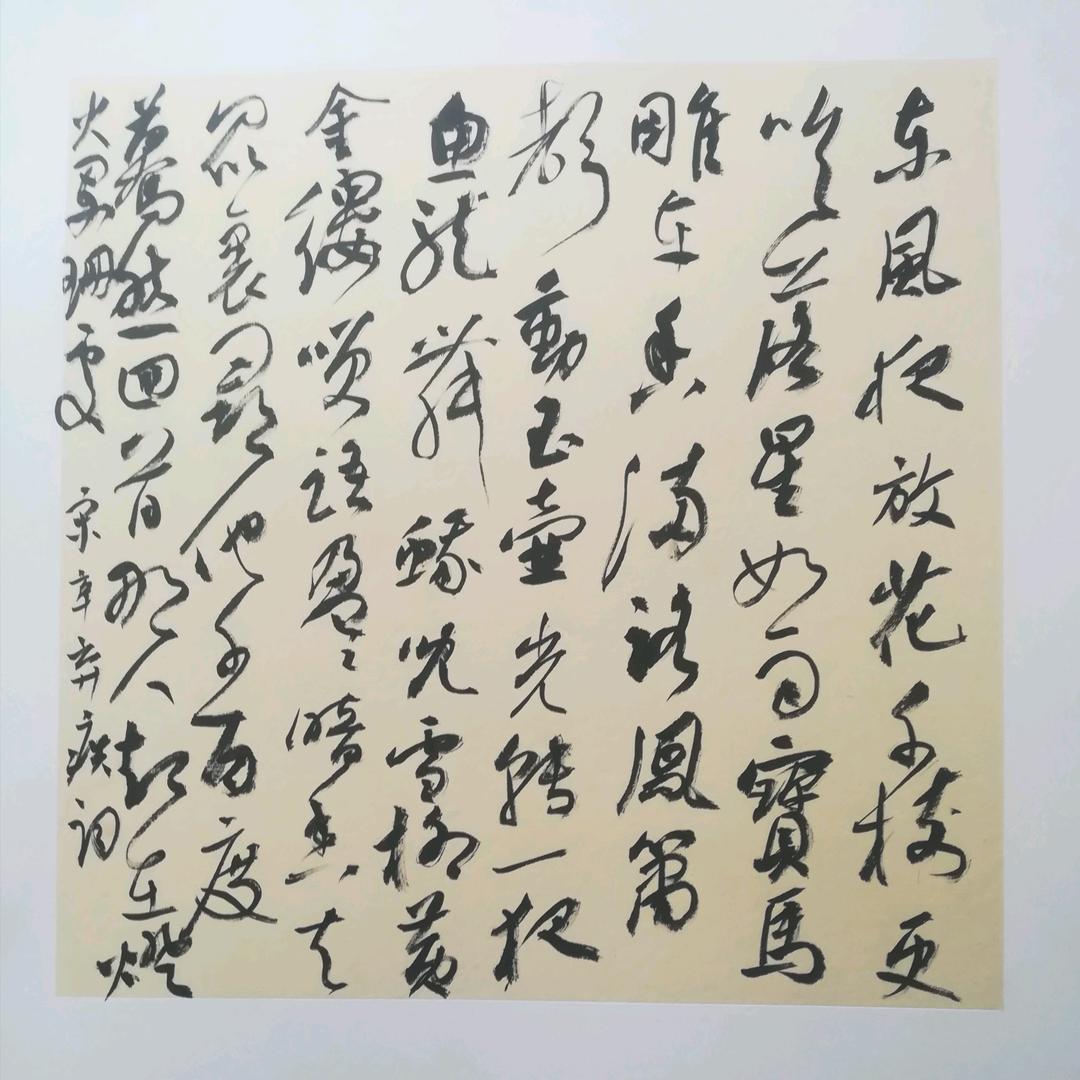 東風夜放花千樹更
吹落星如雨寶馬
雕車香滿路鳳簫
聲動玉壺光轉一夜
魚龍舞蛾兒雪柳黃
金縷笑語盈々暗香去
眾裏尋他千百度
驀然回首那人卻在燈
火闌珊處 宋辛弃疾詞